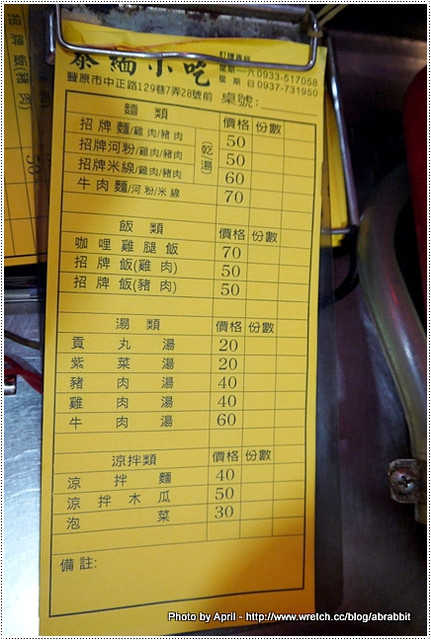 泰緬小吃
訂購專線
星期一~六 0933-517058
星期日 0937-731950
豐原市中正路129巷7弄28號前 桌號:
麵類 價格 份數
招牌麵/雞肉/豬肉 50
招牌河粉/雞肉/豬肉 50
招牌米線/雞肉/豬肉 60
乾湯
牛肉麵/河粉/米線 70
飯類 價格 份數
咖哩雞腿飯 70
招牌飯(雞肉) 50
招牌飯(豬肉) 50
湯類 價格 份數
貢丸湯 20
紫菜湯 20
豬肉湯 40
雞肉湯 40
牛肉湯 60
涼拌類 價格 份數
涼拌麵 40
涼拌木瓜 50
泡菜 30
備註:
Photo by April - http://www.wretch.cc/blog/abrabbit